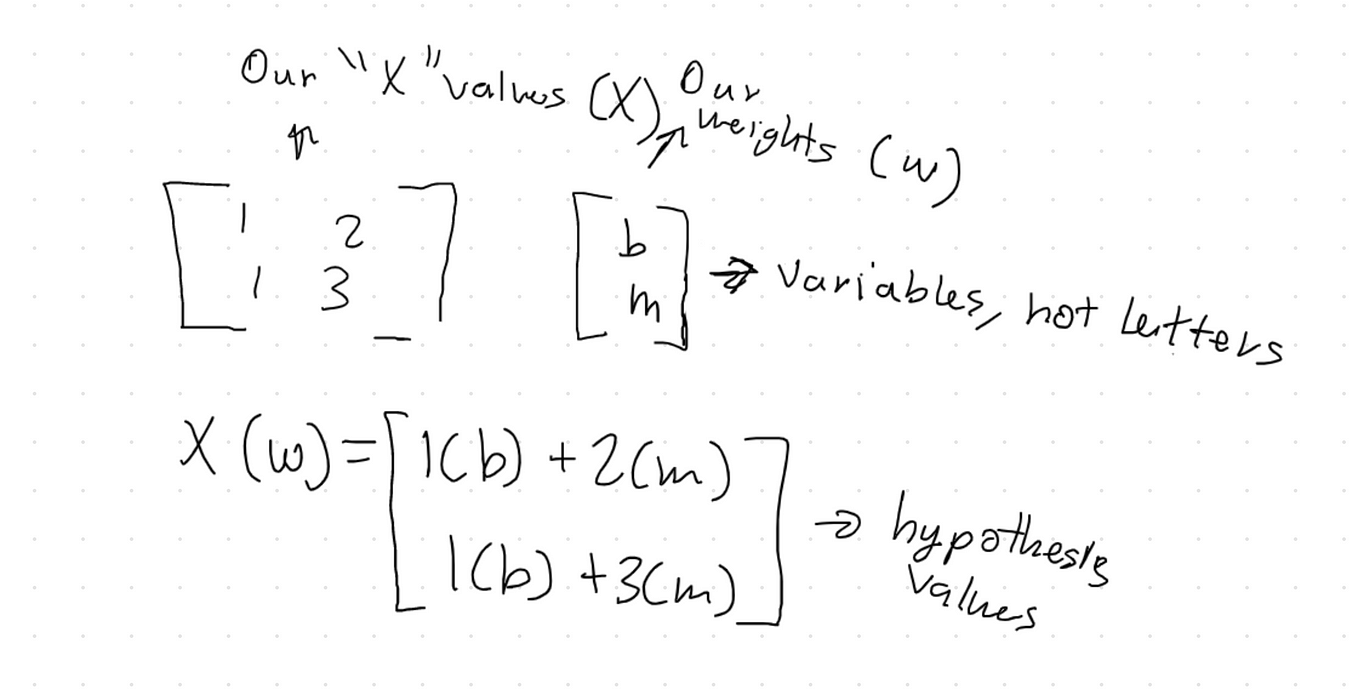 Our "X" values (X)
Our weights (w)
[1 2
1 3]
[b
m] → Variables, not Letters
X (w) = [1(b) + 2(m)
1(b) + 3(m)] → hypothesis
values